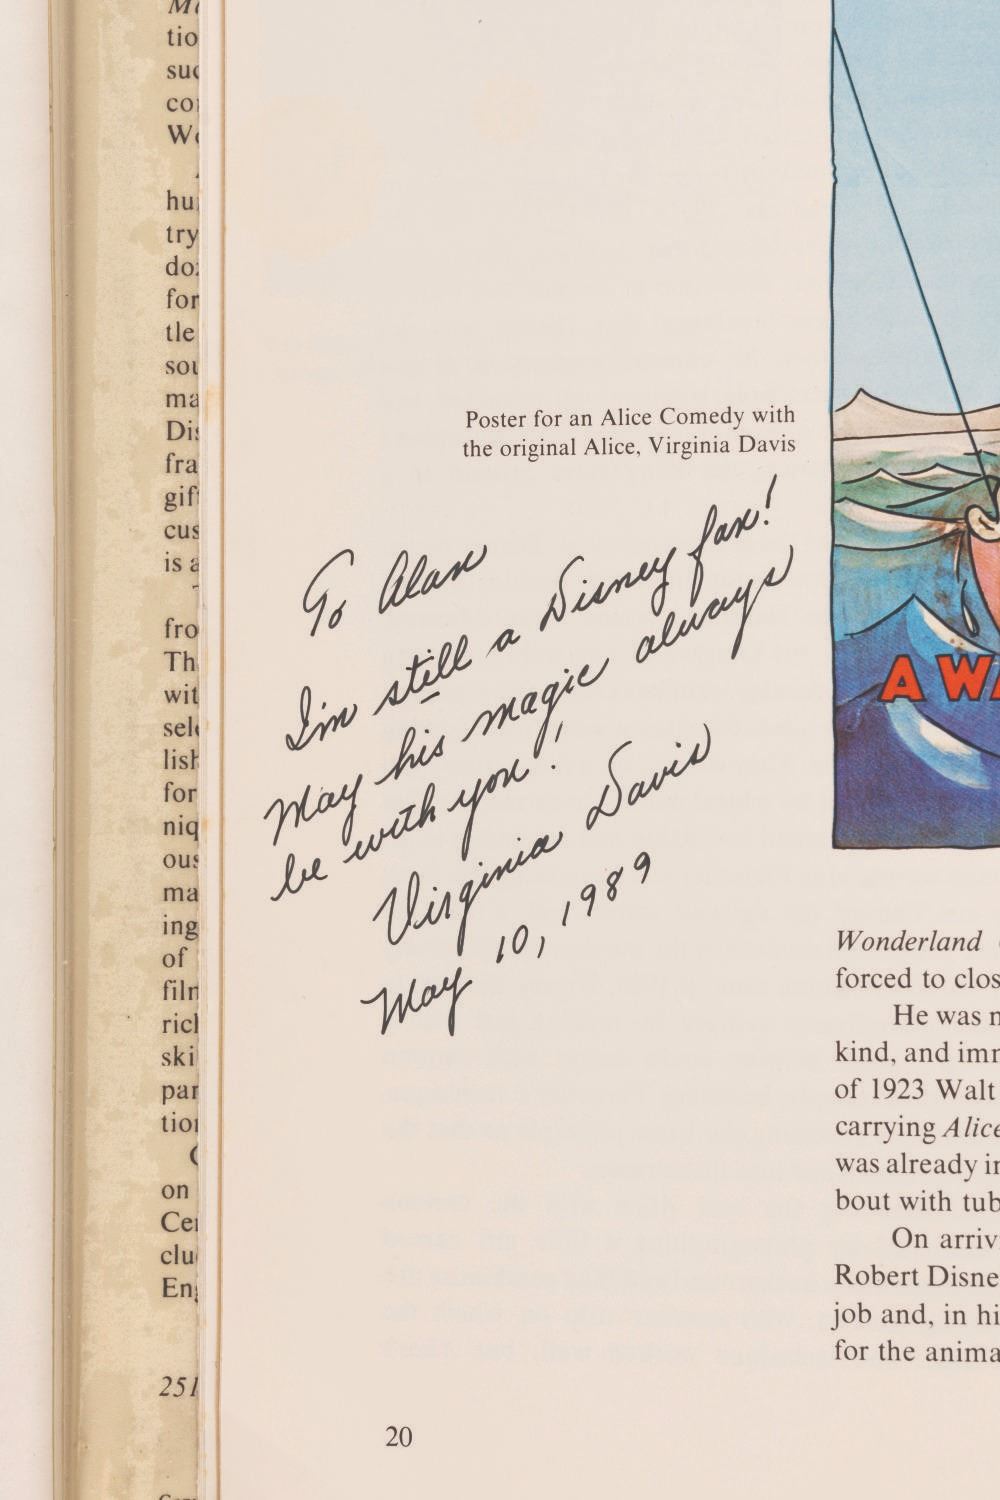 tio
suc
hu
try
for
tle
ma
fra
cus
is a
fro
Th
wit
for
niq
ma
ing
of
ski
par
on
clu
251
Poster for an Alice Comedy with
the original Alice, Virginia Davis
To Alan
I'm still a Disney fan!
May his magic always
be with you!
Virginia Davis
May 10, 1989
A WA
Wonderland
forced to clos
He was n
kind, and imm
of 1923 Walt
carrying Alice
was already in
bout with tub
On arriv
Robert Disne
job and, in hi
for the anima
20